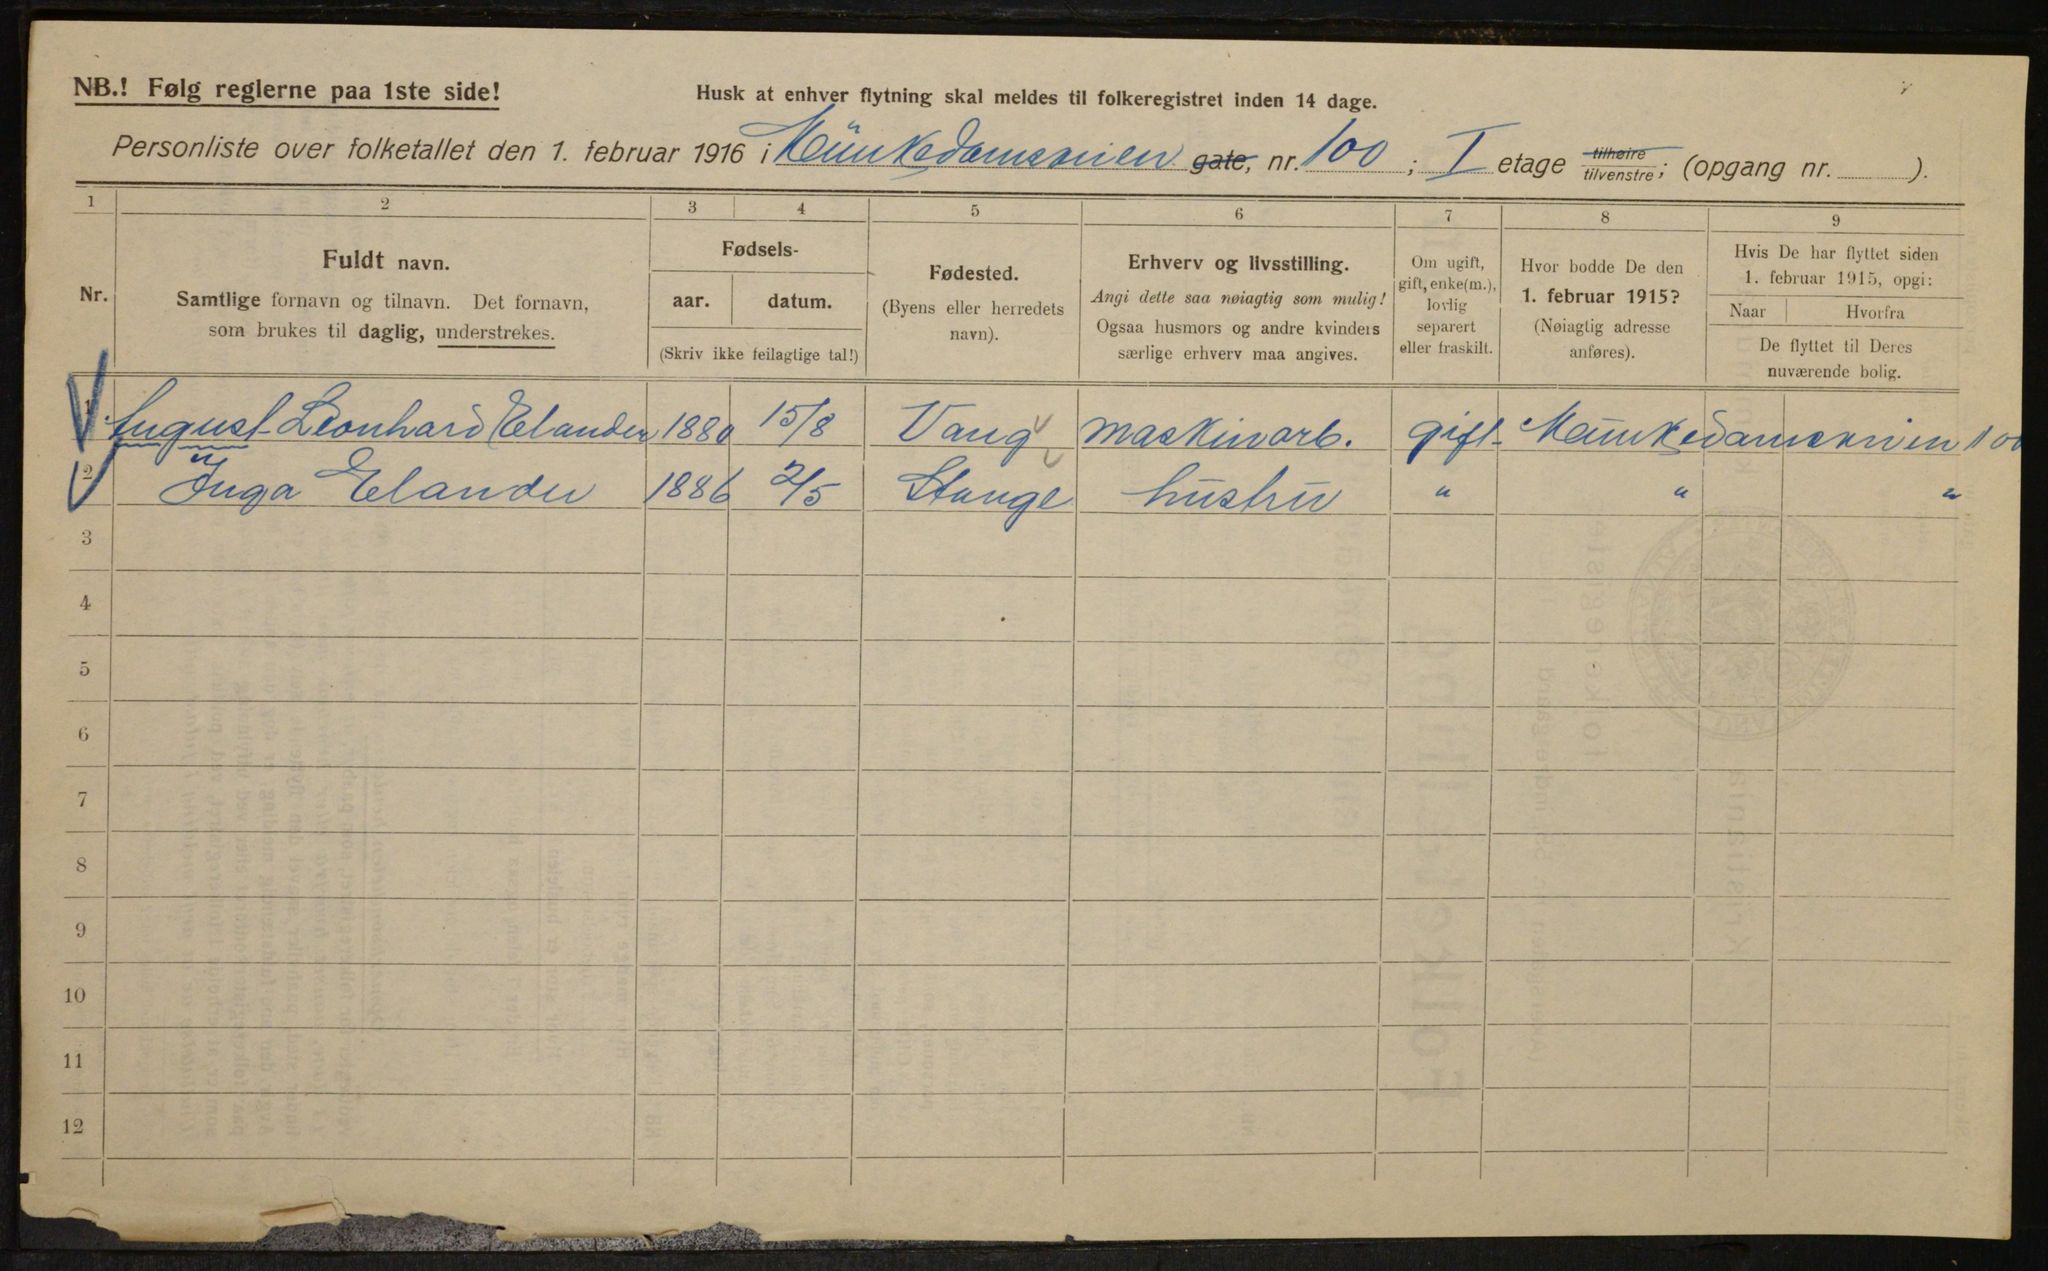 NB.! Følg reglerne paa 1ste side!
Husk at enhver flytning skal meldes til folkeregistret inden 14 dage.
Personliste over folketallet den 1. februar 1916 i Münkedamsveien gate, nr. 100 ; I etage tilhøire tilvenstre; (opgang nr. ).
1 2 3 4 5 6 7 8 9
Nr.
Fuldt navn.
Samtlige fornavn og tilnavn. Det fornavn,
som brukes til daglig, understrekes.
Fødsels-
aar. datum.
(Skriv ikke feilagtige tal!)
Fødested.
(Byens eller herredets
navn).
Erhverv og livsstilling.
Angi dette saa nøiagtig som mulig!
Ogsaa husmors og andre kvinders
særlige erhverv maa angives.
Om ugift,
gift, enke(m.),
lovlig
separert
eller fraskilt.
Hvor bodde De den
1. februar 1915?
(Nøiagtig adresse
anføres).
Hvis De har flyttet siden
1. februar 1915, opgi:
Naar Hvorfra
De flyttet til Deres
nuværende bolig.
1 August Leonhard Elander 1880 15/8 Vang maskinarb. gift Münkedamsveien 100
2 Inga Elander 1886 2/5 Stange hüstrü " " "
3
4
5
6
7
8
9
10
11
12